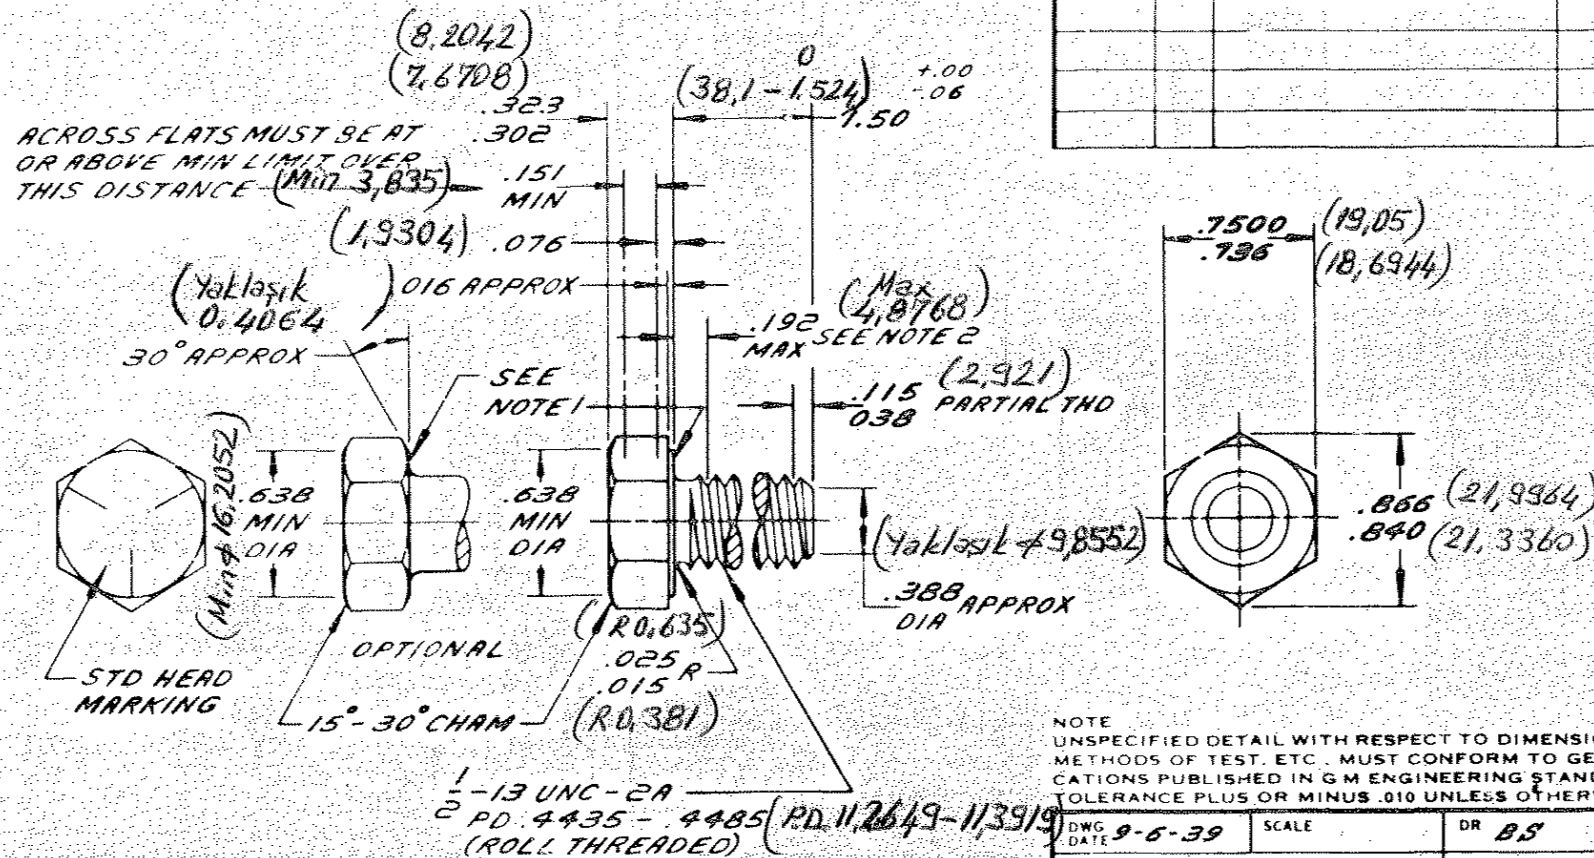 (8,2042)
(7,6708)
.323
.302
0
(38,1 - 1.524)
+.00
-.06
1.50
ACROSS FLATS MUST BE AT
OR ABOVE MIN LIMIT OVER
THIS DISTANCE (Min 3,835)
.151
MIN
(1,9304) .076
(Yaklaşık
0.4064)
.016 APPROX
30° APPROX
.192
MAX
(Max
4,8768)
SEE NOTE 2
SEE
NOTE 1
.115
.038
(2,921)
PARTIAL THD
.7500
.736
(19,05)
(18,6944)
(Min ϕ 16,2052)
.638
MIN
DIA
.638
MIN
DIA
(Yaklaşık ϕ 9,8552)
.388 APPROX
DIA
.866 (21,9964)
.840 (21,3360)
OPTIONAL
STD HEAD
MARKING
15° - 30° CHAM
(R 0,635)
.025 R
.015
(R 0,381)
1/2 - 13 UNC - 2A
PD .4435 - .4485 (PD. 11,2649 - 11,3919)
(ROLL THREADED)
NOTE
UNSPECIFIED DETAIL WITH RESPECT TO DIMENSI
METHODS OF TEST, ETC., MUST CONFORM TO GE
CATIONS PUBLISHED IN G M ENGINEERING STAN
TOLERANCE PLUS OR MINUS .010 UNLESS OTHER
DWG DATE 9-6-39
SCALE
DR BS